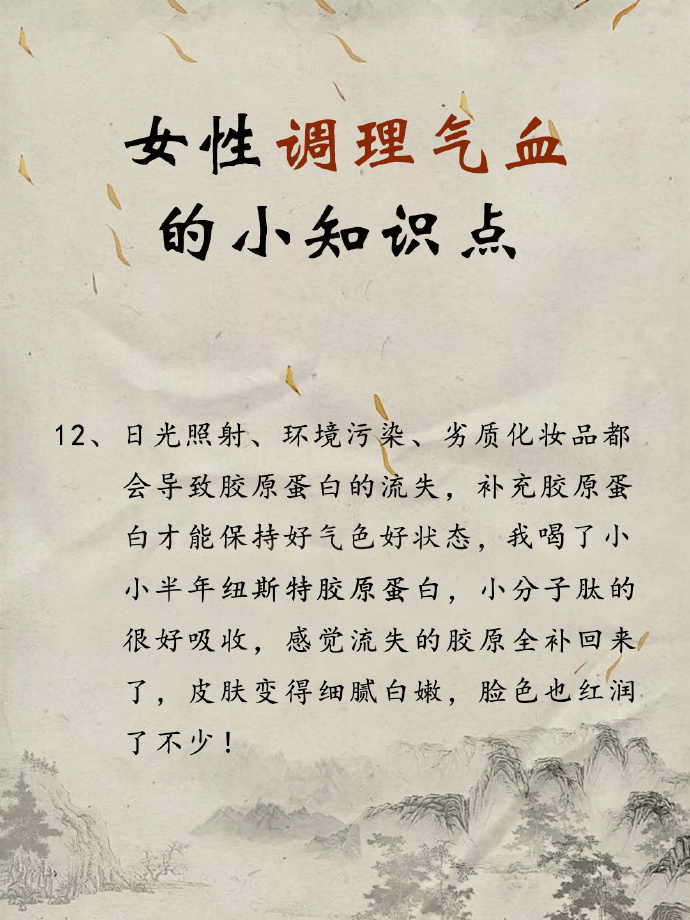 女性调理气血
的小知识点
12、日光照射、环境污染、劣质化妆品都
会导致胶原蛋白的流失，补充胶原蛋
白才能保持好气色好状态，我喝了小
小半年纽斯特胶原蛋白，小分子肽的
很好吸收，感觉流失的胶原全补回来
了，皮肤变得细腻白嫩，脸色也红润
了不少！